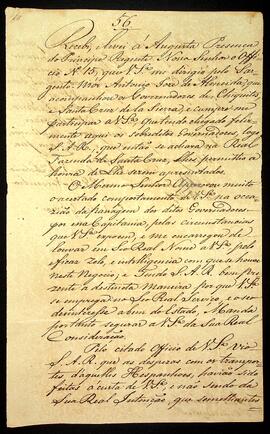 56
Recebi, e levei á Augusta Presença
do Principe Regente Nosso Senhor o Offi
cio Nº 15, que V.Sª me dirigio pelo Sar
gento Mor Antonio José de Almeida que
acompanhou os Governadores de Chiquitos
e Santa Cruz de la Sierra; e cumpre me
participar a V.Sª que tendo chegado feliz
mente aqui os sobreditos Governadores, logo
S.A.R., que então se achava na Real
Fazenda de Santa Cruz, lhes permittio a
honra de lhe serem apresentados.
O Mesmo Senhor Approvou muito
o acertado comportamento de V.Sª na oc
casião da passagem dos ditos Governadores
por essa Capitania, pelas circunstancias
que V.Sª expoem, e me encarregou de
louvar em Seo Real Nome a V.Sª pelo
eficaz zelo, e intelligencia com que se houve
neste Negocio; e Tendo S.A.R. bem pre
zente a distincta maneira por que V.Sª
se emprega no Seo Real Serviço, e o seo
desinteresse a bem do Estado, Manda
por tanto segurar a V.Sª da Sua Real
Consideração.
Pelo citado Officio de V.Sª vio
S.A.R. que as despezas com os transpor
tes d'aquelles Hespanhoes, havião sido
feitas á custa de V.Sª, e não sendo da
Sua Real Intenção, que semelhantes